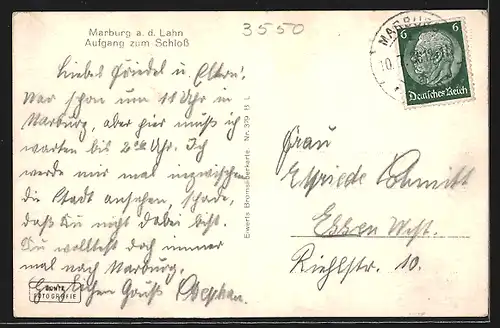 Marburg a. d. Lahn
Aufgang zum Schloß
3550
MARBURG
10.
6 6
Deutsches Reich
Liebes und Eltern!
War schon um 11 Uhr in
Marburg, aber hier muß ich
warten bis 2 Uhr. Ich
werde mir mal inzwischen
die Stadt ansehen, schade,
daß Du nicht dabei bist.
Du wolltest doch immer
mal nach Marburg.
Herzlichen Gruß
ECHTE
FOTOGRAFIE
Elwerts Bromsilberkarte. Nr. 379 B L
Frau
Elfriede Schmitt
Essen West.
Riehlstr. 10.